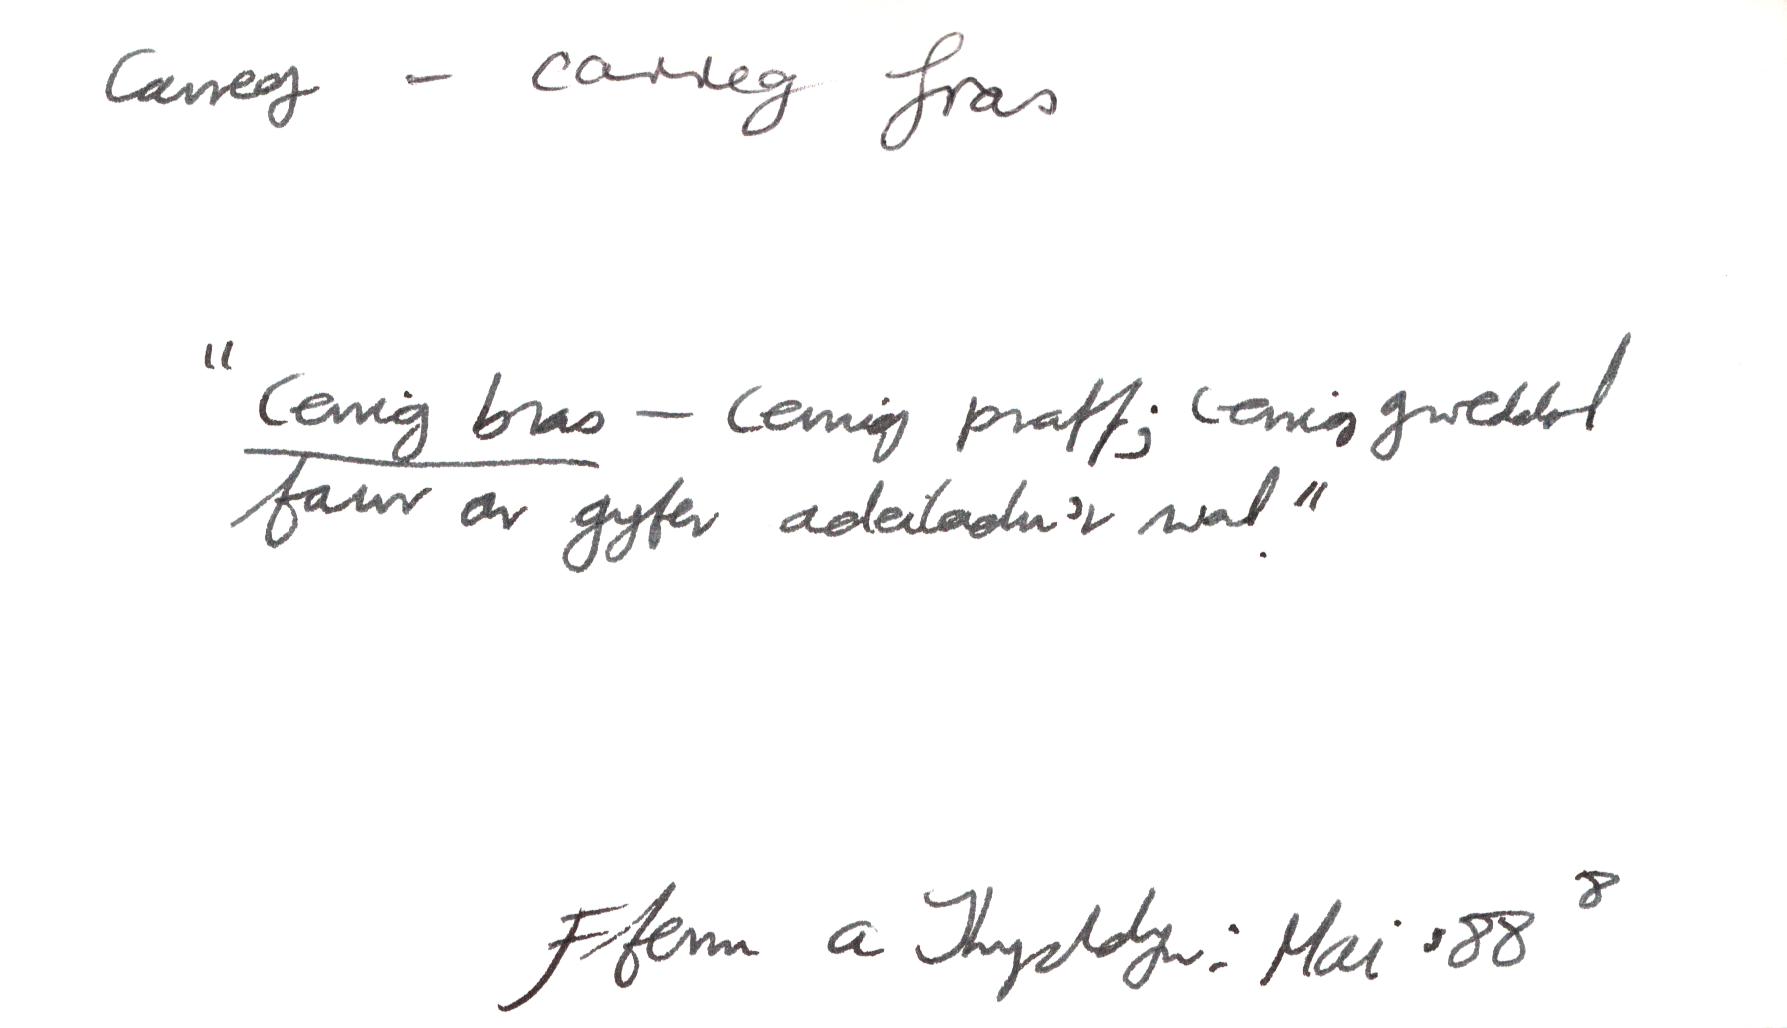 Carreg - carreg fras
"Cerrig bras - cerrig praff; cerrig gweddol
fawr ar gyfer adeiladu'r wal."
Fferm a Thyddyn: Mai '88 8